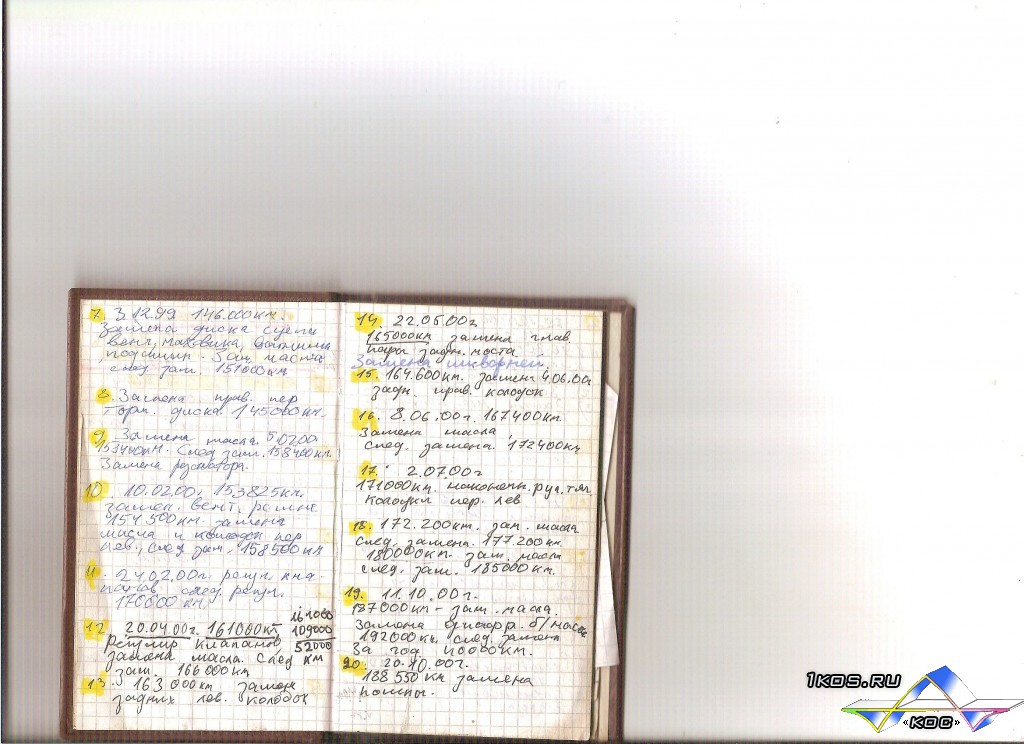 7. 3.12.99 146.000км.
Замена диска сцепл
вент, маховика,
подшипн. Зам. масла
след. зам. 151000км
8. Замена прав. пер
торм. диска. 145000км.
9. Замена масла. 5.02.00
153400км. След. зам. 158400км.
Замена резонатора.
10. 10.02.00г. 153825км.
замен. вент. ремня
154.500км. замена
масла и колодок пер
лев. след. зам. 158500км
11. 24.02.00г. регул. кла-
панов след. регул.
170000 км.
161000
12. 20.04.00г. 161000км, 109000
Регулир клапанов 52000
замена масла. След км
зам. 166000км
13. 163000км замен
задних лев. колодок
14. 22.05.00г
165000км замена глав.
пары задн. моста
Замена шкворней
15. 164.600км. замен 4.06.00г
задн. прав. колодок
16. 8.06.00г. 167400км.
Замена масла
след. замена. 172400км
17. 2.07.00г
171000км. наконечн. рул. тяг.
колодки пер. лев
18. 172.200км. зам. масла
след. замена. 177.200км.
180000км. зам. масла
след. зам. 185000км.
19. 11.10.00г.
187000км - зам. масла.
Замена б/насос
192000км. след. замен
За год 40000км.
20. 20.10.00г.
188550км замена
помпы.
1KOS.RU
«КОС»